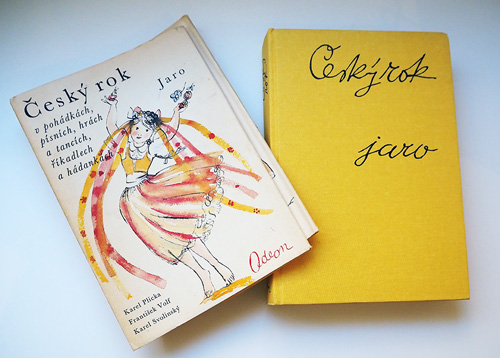 Český rok
Jaro
v pohádkách,
písních, hrách
a tancích,
říkadlech
a hádankách
Odeon
Karel Plicka
František Volf
Karel Svolinský
Český rok
jaro